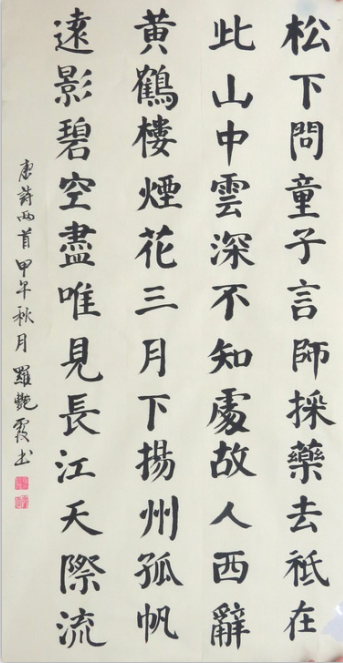 松下問童子言師採藥去祇在
此山中雲深不知處故人西辭
黃鶴樓煙花三月下揚州孤帆
遠影碧空盡唯見長江天際流
唐詩兩首甲午秋月羅艷霞书